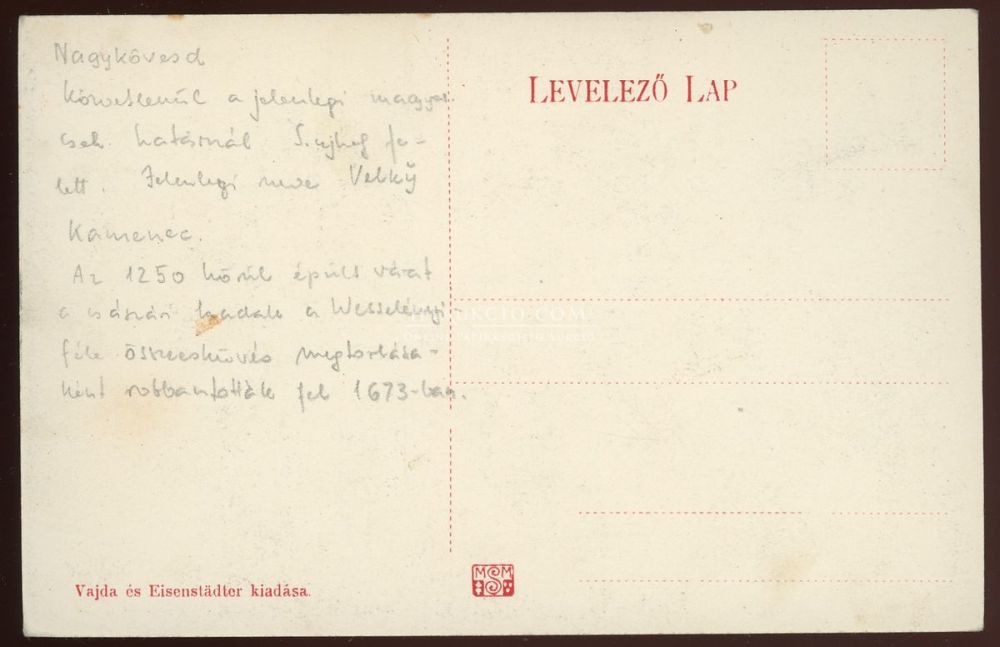 Nagykövesd
Közvetlenül a jelenlegi magyar
cseh határnál S.ujhely fe-
lett. Jelenlegi neve Velký
Kamenec.
Az 1250 körül épült várat
a császári hadak a Wesselényi
féle összeesküvés megtorlása-
ként robbantották fel 1673-ban.
LEVELEZŐ LAP
Vajda és Eisenstädter kiadása.
MSM